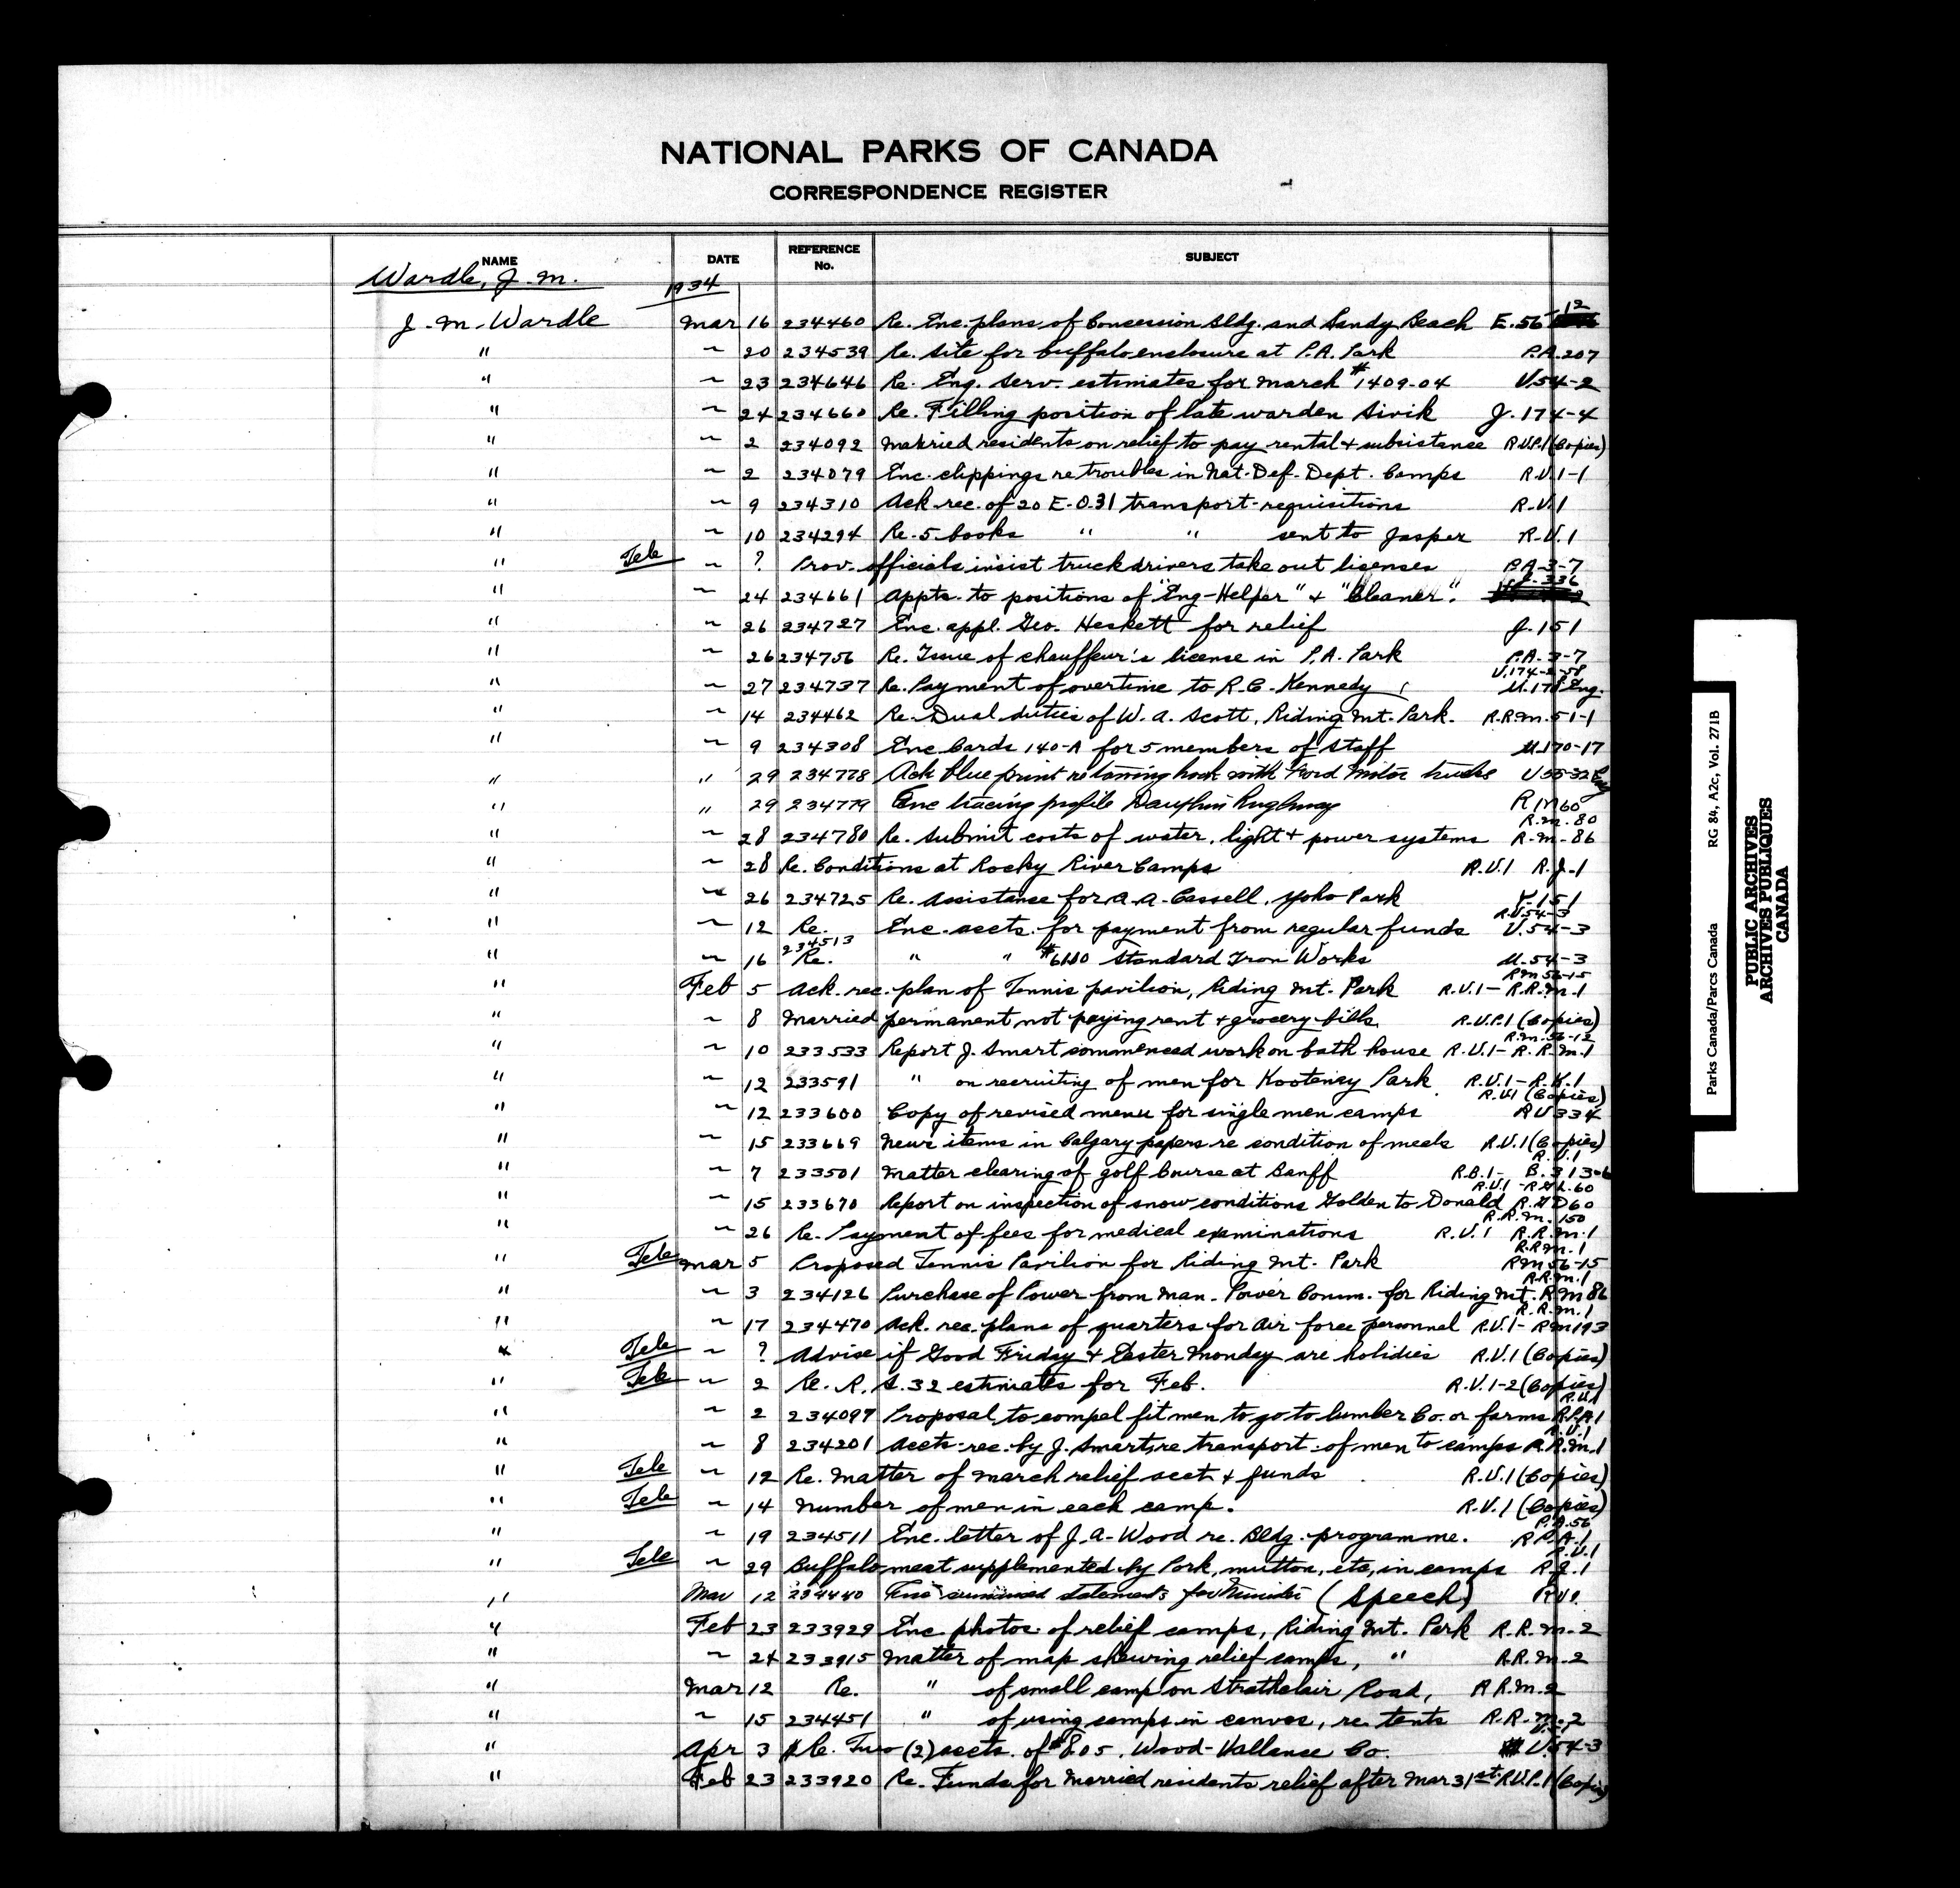 NATIONAL PARKS OF CANADA
CORRESPONDENCE REGISTER
NAME DATE REFERENCE No. SUBJECT
Wardle, J.M. 1934
J.M. Wardle Mar 16 234460 Re. Enc. plans of Concession Bldg. and Sandy Beach E.56-12
" ~ 20 234539 Re. Site for buffalo enclosure at P.A. Park P.A.207
" ~ 23 234646 Re. Eng. Serv. estimates for March #1409-04 U.54-2
" ~ 24 234660 Re. Filling position of late warden Sivik J.174-4
" ~ 2 234092 Married residents on relief to pay rental & subsistance R.V.P.1 (Copies)
" ~ 2 234079 Enc. clippings re troubles in Nat. Def. Dept. Camps R.V.1-1
" ~ 9 234310 Ack. rec. of 20 E.O.31 transport requisitions R.V.1
" ~ 10 234294 Re. 5 books " " sent to Jasper R.V.1
" Tele ~ ? Prov. officials insist truck drivers take out licenses P.A-3-7
" ~ 24 234661 Appts. to positions of "Eng-Helper" & "Cleaner". 336
" ~ 26 234727 Enc. appl. Geo. Heskett for relief J.151
" ~ 26 234756 Re. Issue of chauffeur's license in P.A. Park P.A.3-7
" ~ 27 234737 Re. Payment of overtime to R.C. Kennedy U.174-2-58 U.170 Eng.
" ~ 14 234462 Re. Dual duties of W.A. Scott, Riding Mt. Park. R.R.M.51-1
" ~ 9 234308 Enc Cards 140-A for 5 members of Staff U.170-17
" " 29 234778 Ack blue print re towing hook with Ford Motor trucks U55-32 Eng
" " 29 234779 Enc tracing profile Dauphin Highway RM60
" ~ 28 234780 Re. Submit costs of water, light & power systems R.M.80 R.M-86
" ~ 28 Re. Conditions at Rocky River Camps R.V.1 R.J-1
" ~ 26 234725 Re. Assistance for A.A. Cassell, Yoho Park Y-151
" ~ 12 Re. Enc. accts. for payment from regular funds R.V.54-3 U.54-3
" ~ 16 234513 Re. " " #6110 Standard Iron Works U.54-3
" Feb 5 Ack. rec. plan of Tennis pavilion, Riding Mt. Park RM56-15 R.V.1-R.R.M.1
" ~ 8 Married permanent not paying rent & grocery bills R.V.P.1 (Copies)
" ~ 10 233533 Report J. Smart commenced work on bath house R.M.56-12 R.V.1-R.R.M.1
" ~ 12 233591 " on recruiting of men for Kootenay Park R.V.1-R.K.1
" ~ 12 233600 Copy of revised menu for single men camps R.V.1 (Copies) RU334
" ~ 15 233669 News items in Calgary papers re condition of meals R.V.1 (Copies)
" ~ 7 233501 Matter clearing of golf Course at Banff R.V.1 R.B.1- B.313-6
" ~ 15 233670 Report on inspection of snow conditions Golden to Donald R.V.1 R.GD60
" ~ 26 Re. Payment of fees for medical examinations R.R.M.150 R.V.1 R.R.M.1
" Tele Mar 5 Proposed Tennis Pavilion for Riding Mt. Park R.R.M.1 RM56-15
" ~ 3 234126 Purchase of Power from Man. Power Comm. for Riding Mt. R.R.M.1 RM86
" ~ 17 234470 Ack. rec. plans of quarters for air force personnel R.R.M.1 R.V.1-RM193
" Tele ~ ? Advise if Good Friday & Easter Monday are holidies R.V.1 (Copies)
" Tele ~ 2 Re. R.A.32 estimates for Feb. R.V.1-2 (Copies)
" ~ 2 234097 Proposal to compel fit men to go to lumber Co. or farms R.V.1 R.P.A.1
" ~ 8 234201 Accts. rec. by J. Smart, re transport. of men to camps R.V.1 R.R.M.1
" Tele ~ 12 Re. Matter of March relief acct. & funds R.V.1 (Copies)
" Tele ~ 14 Number of men in each camp. R.V.1 (Copies)
" ~ 19 234511 Enc. letter of J.A. Wood re. Bldg. programme. P.A.56 R.P.A.1
" Tele ~ 29 Buffalo meat supplemented by Pork, mutton, etc, in camps R.V.1 R.J.1
" Mar 12 234440 statements for Minister (Speech) RV1.
" Feb 23 233929 Enc. photos of relief camps, Riding Mt. Park R.R.M.2
" ~ 24 233915 Matter of map shewing relief camps, " R.R.M.2
" Mar 12 Re. " of small camp on Strathclair Road, R.R.M.2
" ~ 15 234451 " of using camps in canvas, re. tents R.R.M.2
" Apr 3 Re. Two (2) accts. of $8.05, Wood-Vallance Co. U.54-3
" Feb 23 233920 Re. Funds for Married residents relief after Mar 31st. R.V.P.1 (Copies)
Parks Canada/Parcs Canada RG 84, A2c, Vol. 271B
PUBLIC ARCHIVES
ARCHIVES PUBLIQUES
CANADA